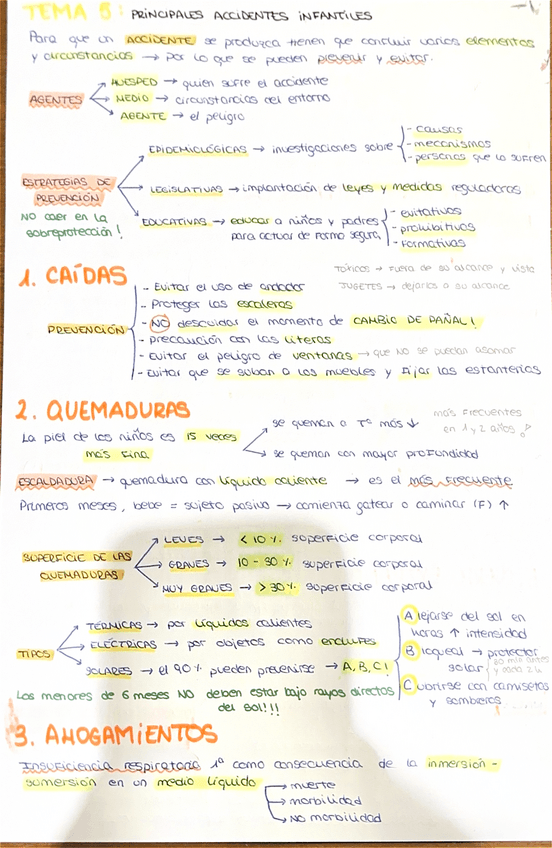 TEMA 5: PRINCIPALES ACCIDENTES INFANTILES
Para que un ACCIDENTE se produzca tienen que concluir varios elementos
y circunstancias → por lo que se pueden prevenir y evitar.
AGENTES
HUESPED → quien sufre el accidente
MEDIO → circunstancias del entorno
AGENTE → el peligro
ESTRATEGIAS DE
PREVENCIÓN
NO caer en la
sobreprotección!
EPIDEMIOLÓGICAS → investigaciones sobre
- causas
- mecanismos
- personas que lo sufren
LEGISLATIVAS → implantación de leyes y medidas reguladoras
EDUCATIVAS → educar a niños y padres
para actuar de forma segura
- evitativos
- prohibitivos
- Formativas
1. CAÍDAS
Tóxicos → Fuera de su alcance y vista
JUGETES → dejarlos a su alcance
PREVENCIÓN
- Evitar el uso de andador
- Proteger las escaleras
- NO descuidar el momento de CAMBIO DE PAÑAL!
- precaución con las literas
- Evitar el peligro de ventanas → que NO se puedan asomar
- Evitar que se suban a los muebles y Fijar las estanterias
2. QUEMADURAS
La piel de los niños es 15 veces
más Fina
se queman a Tª más ↓
se queman con mayor profundidad
más Frecuentes
en 1 y 2 años!
ESCALDADURA → quemadura con líquido caliente → es el más Frecuente
Primeros meses, bebe = sujeto pasivo → comienza gatear o caminar (F) ↑
SUPERFICIE DE LAS
QUEMADURAS
LEVES → < 10 % superficie corporal
GRAVES → 10 - 30 % superficie corporal
MUY GRAVES → > 30 % superficie corporal
TIPOS
TÉRMICAS → por líquidos calientes
ELÉCTRICAS → por objetos como enchufes
SOLARES → el 90 % pueden prevenirse → A, B, C!
A lejarse del sol en
horas ↑ intensidad
B loqueal → protector
solar
30 min antes
y cada 2h
C ubrirse con camisetas
y sombreros
Los menores de 6 meses NO deben estar bajo rayos directos
del sol!!!
3. AHOGAMIENTOS
Insuficiencia respiratoria 1ª como consecuencia de la inmersión -
sumersión en un medio líquido
muerte
morbilidad
NO morbilidad